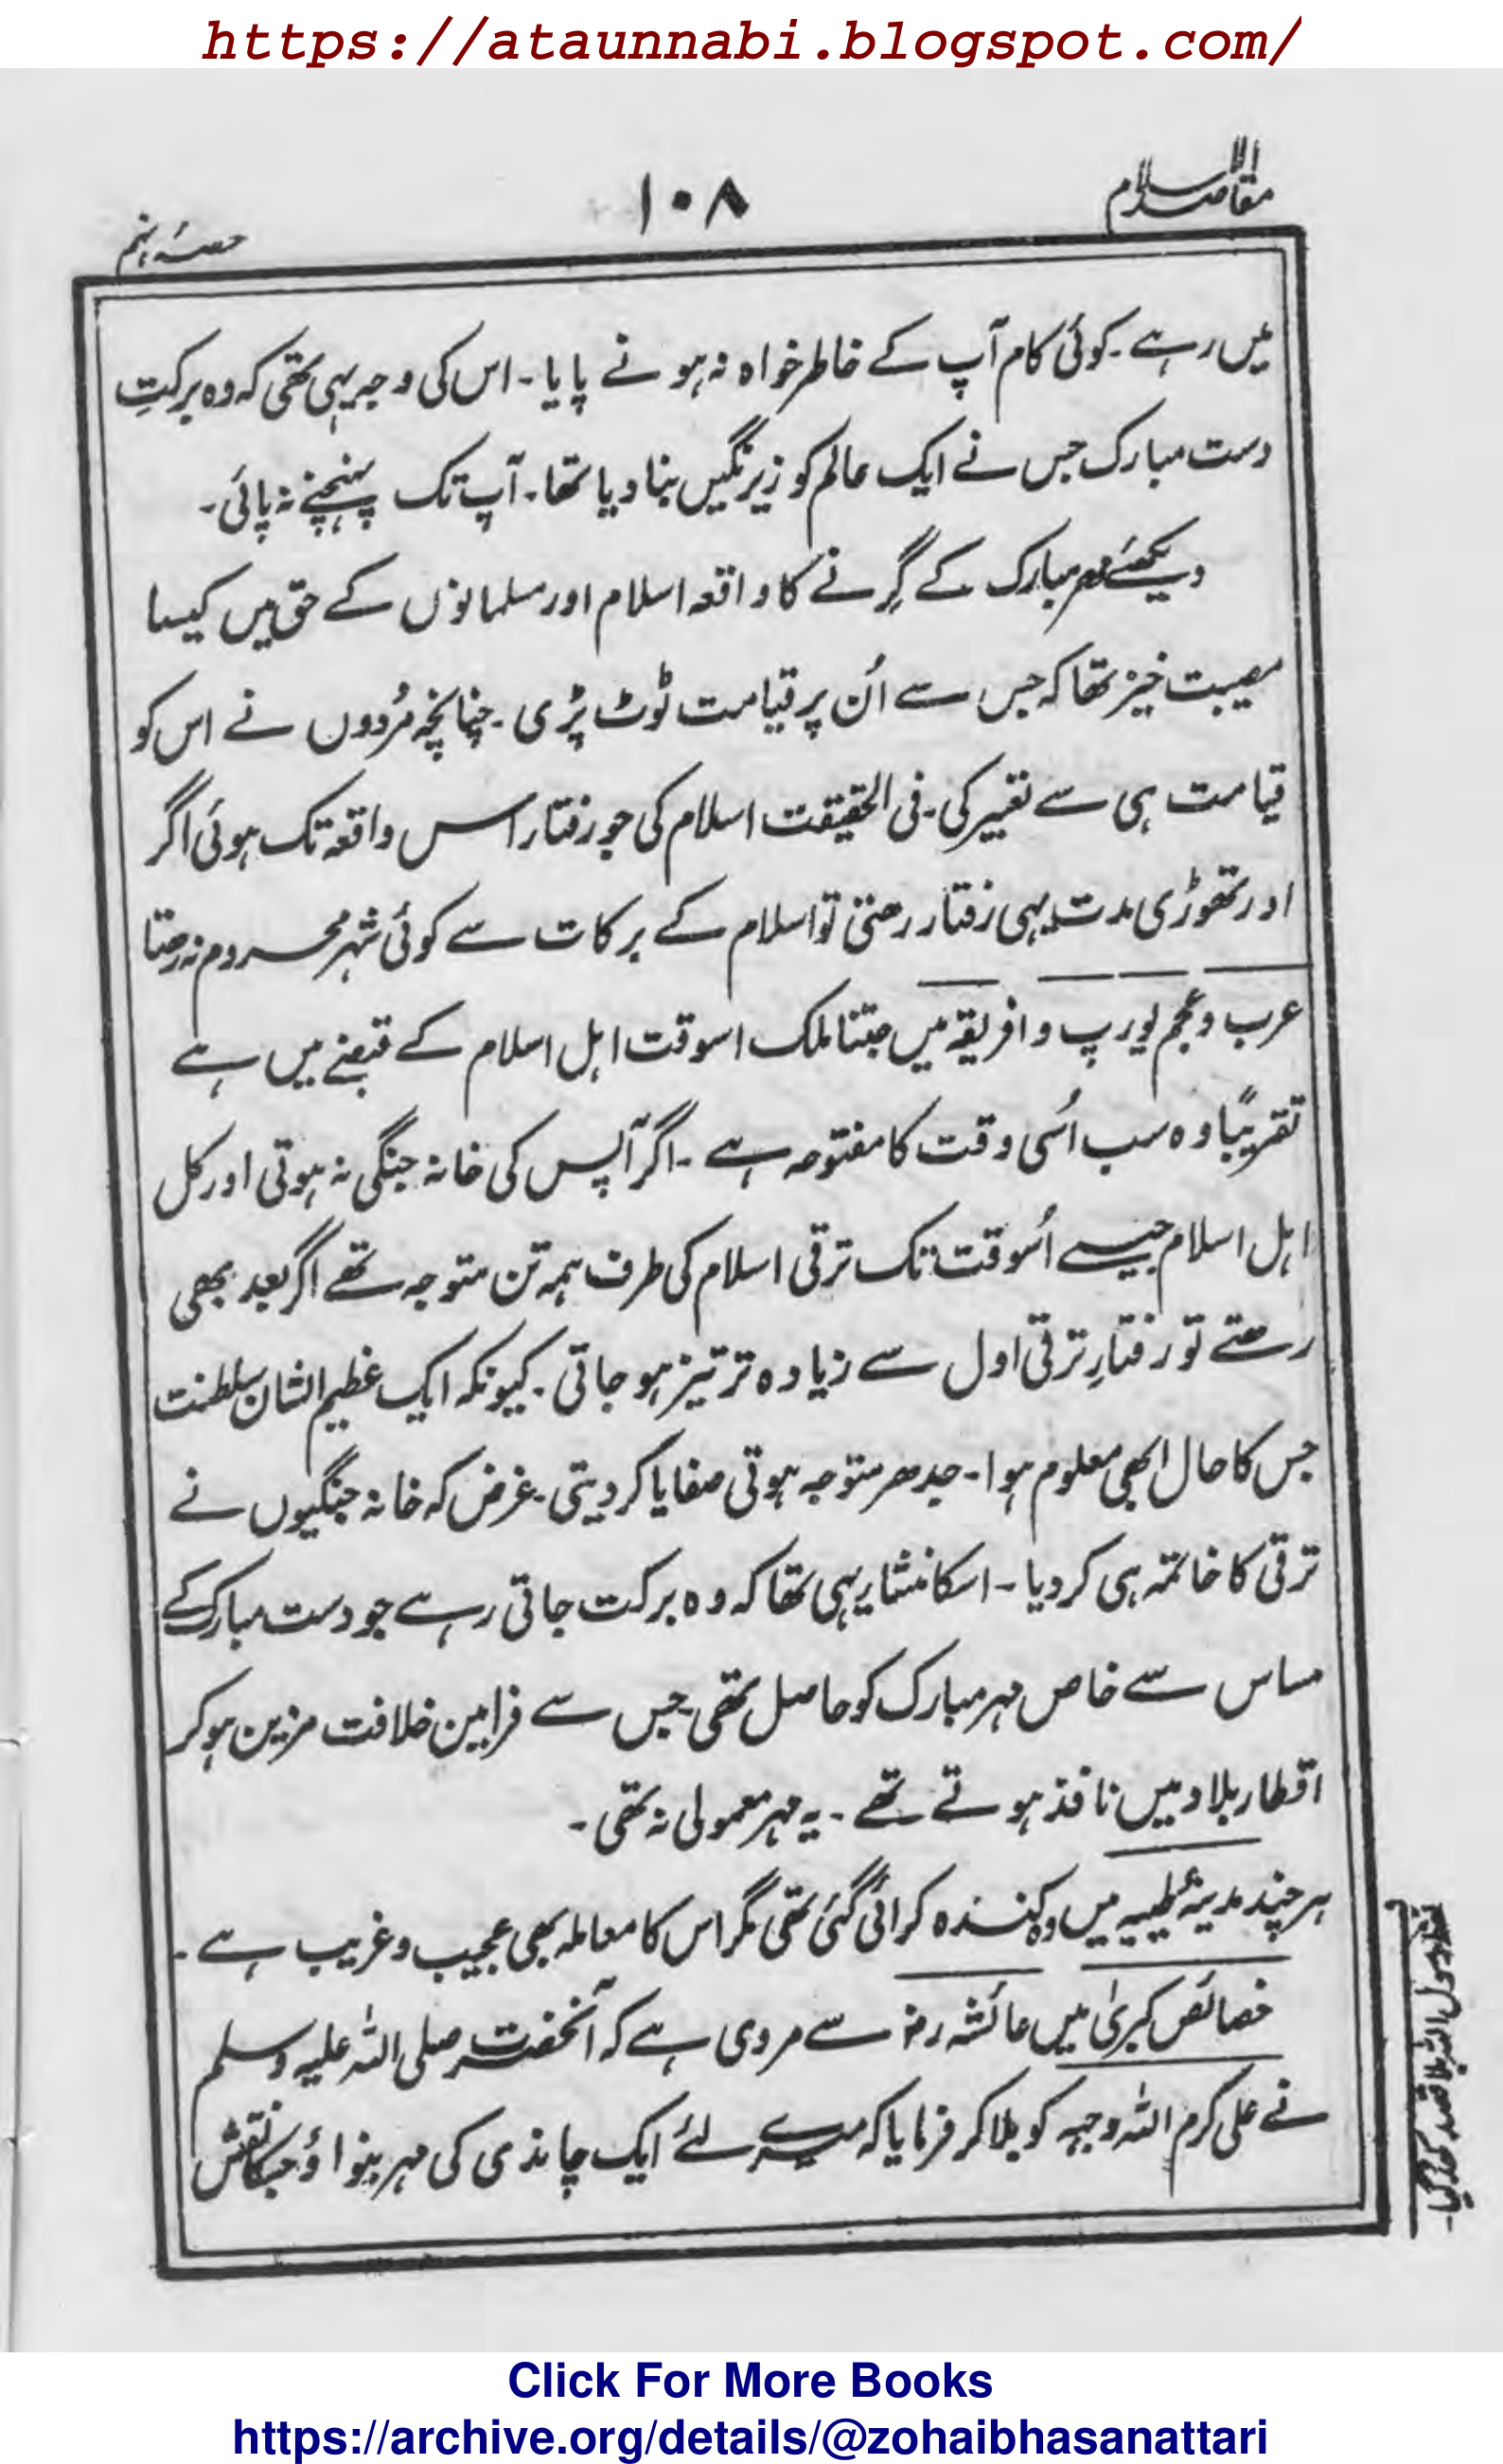 https://ataunnabi.blogspot.com/
مقاصد الاسلام
۱۰۸
حصۂ نہم
میں رہے۔ کوئی کام آپ کے خاطر خواہ نہ ہونے پایا۔ اس کی وجہ یہی تھی کہ وہ برکتِ
دست مبارک جس نے ایک عالم کو زیرنگیں بنا دیا تھا۔ آپ تک پہنچنے نہ پائی۔
دیکھئے مہر مبارک کے گِرنے کا واقعہ اسلام اور مسلمانوں کے حق میں کیسا
مصیبت خیز تھا کہ جس سے اُن پر قیامت ٹوٹ پڑی۔ چنانچہ مُردوں نے اس کو
قیامت ہی سے تعبیر کی۔ فی الحقیقت اسلام کی جو رفتار اس واقعہ تک ہوئی اگر
اور تھوڑی مدت یہی رفتار رہتی تو اسلام کے برکات سے کوئی شہر محروم نہ رہتا
عرب و عجم یورپ و افریقہ میں جتنا ملک اسوقت اہل اسلام کے قبضے میں ہے
تقریبًا وہ سب اُسی وقت کا مفتوحہ ہے۔ اگر آپس کی خانہ جنگی نہ ہوتی اور کل
اہل اسلام جیسے اُسوقت تک ترقی اسلام کی طرف ہمہ تن متوجہ تھے اگر بعد بھی
رہتے تو رفتارِ ترقی اول سے زیادہ تر تیز ہو جاتی۔ کیونکہ ایک عظیم الشان سلطنت
جس کا حال ابھی معلوم ہوا۔ جدھر متوجہ ہوتی صفایا کر دیتی۔ غرض کہ خانہ جنگیوں نے
ترقی کا خاتمہ ہی کر دیا۔ اسکا منشا یہی تھا کہ وہ برکت جاتی رہے جو دست مبارک کے
مساس سے خاص مہر مبارک کو حاصل تھی۔ جس سے فرامین خلافت مزین ہو کر
اقطار بلاد میں نافذ ہوتے تھے۔ یہ مہر معمولی نہ تھی۔
ہر چند مدینۂ طیبہ میں وہ کندہ کرائی گئی تھی مگر اس کا معاملہ بھی عجیب و غریب ہے۔
خصائص کبریٰ میں عائشہ رضؓ سے مروی ہے کہ آنحضرت صلی اللہ علیہ وسلم
نے علی کرم اللہ وجہہ کو بلا کر فرمایا کہ میرے لئے ایک چاندی کی مہر بنواؤ جسکا نقش
Click For More Books
https://archive.org/details/@zohaibhasanattari